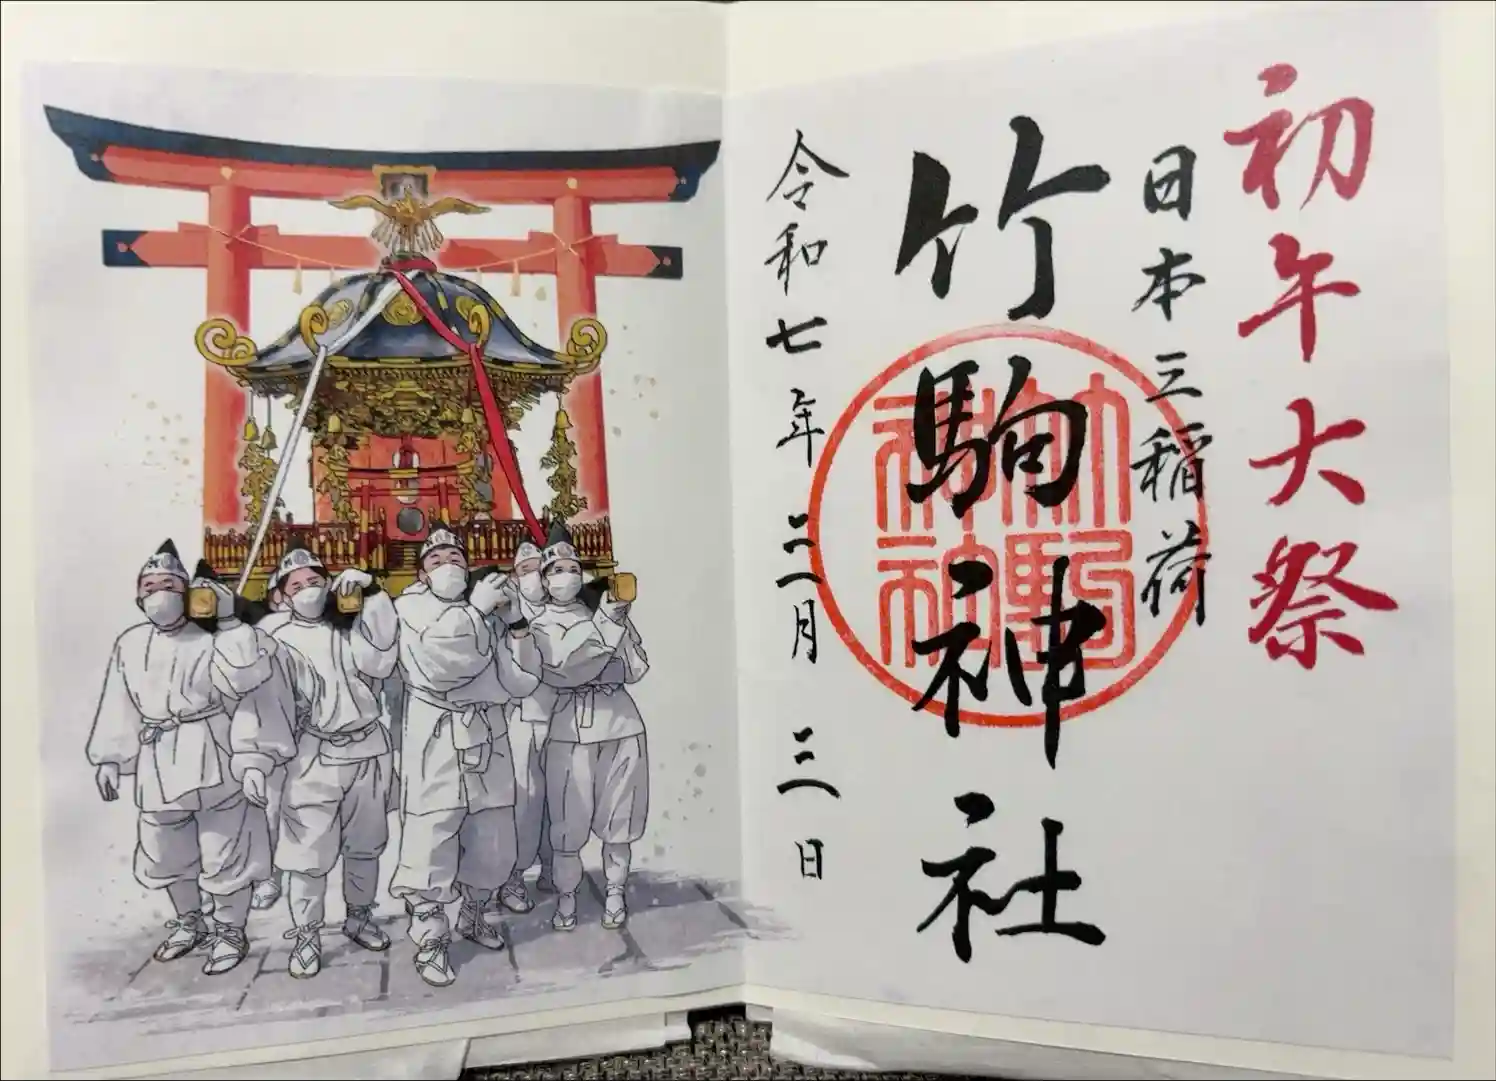 初午大祭
日本三稲荷
竹駒神社
竹駒神社
令和七年三月三日